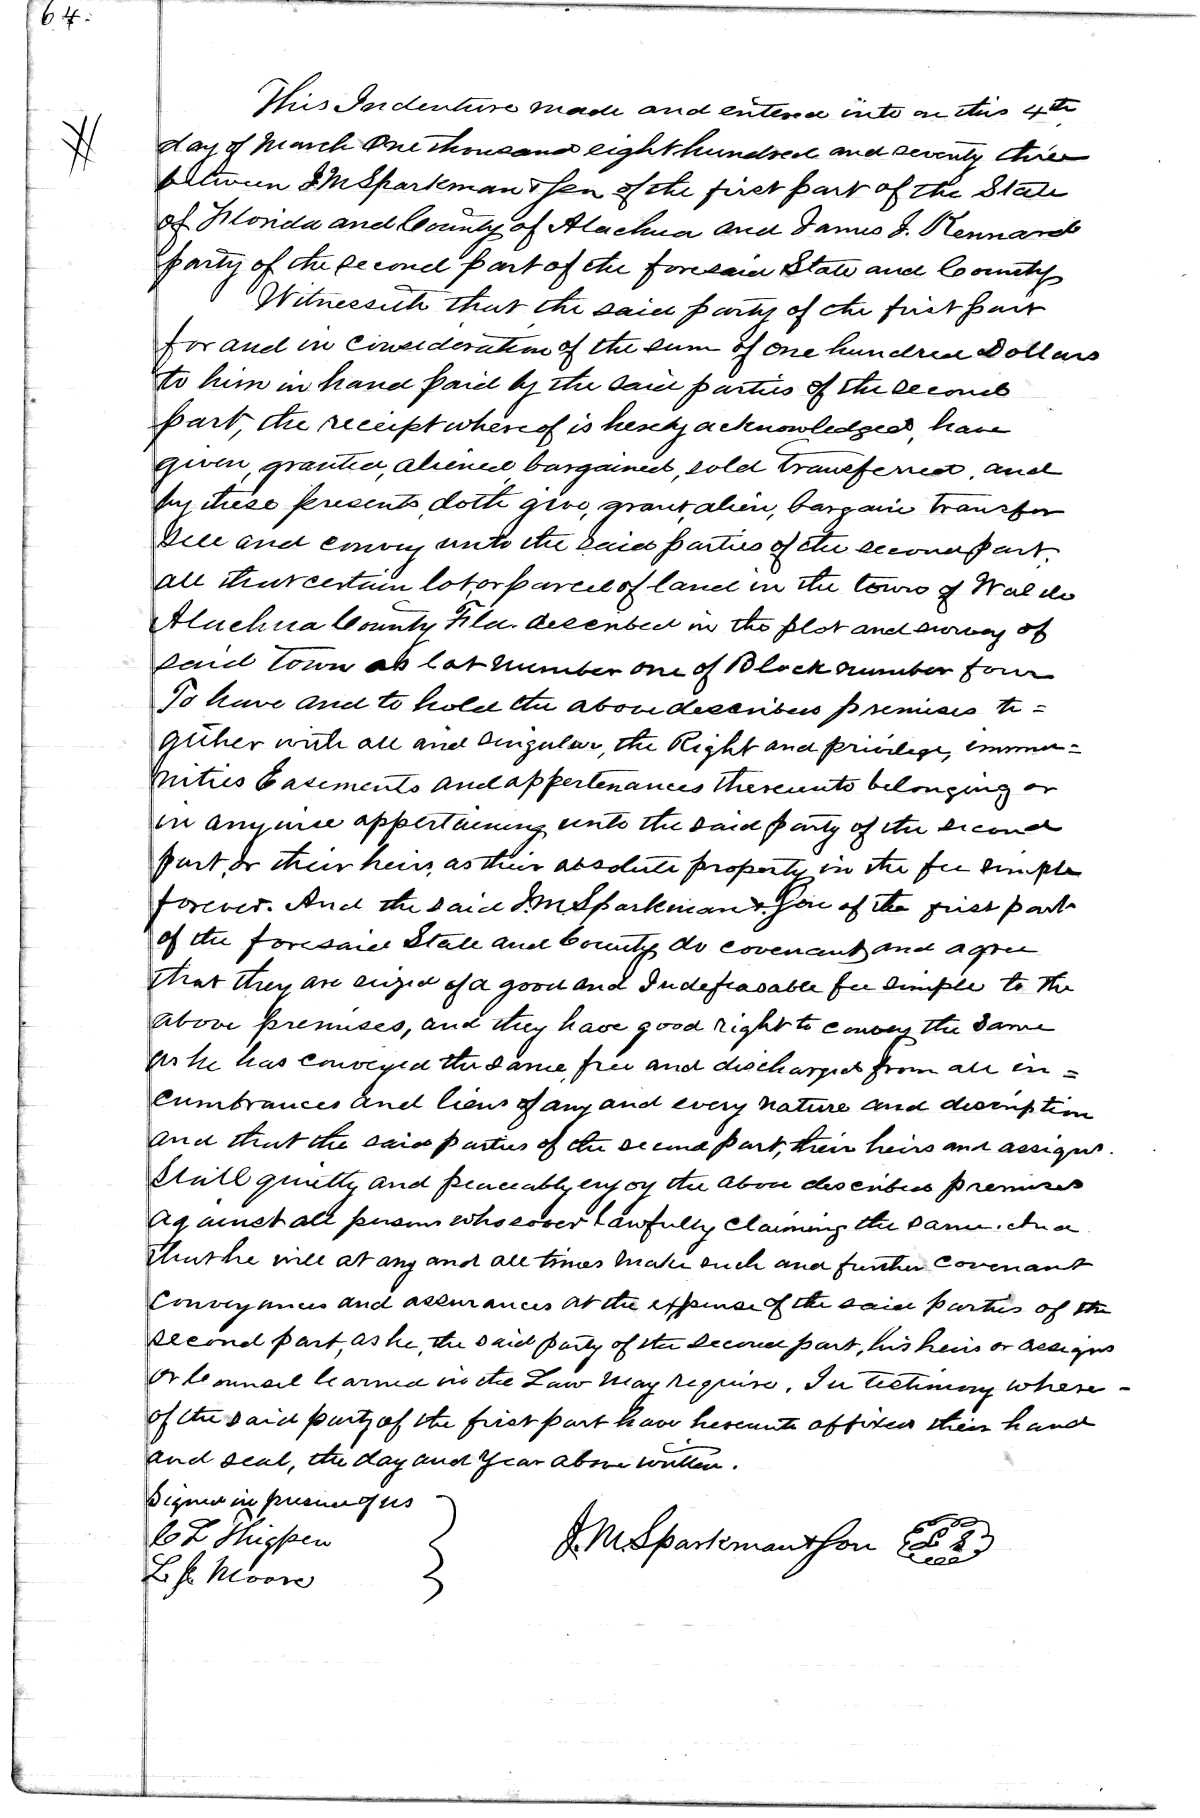 64.
This Indenture made and entered into on this 4th
day of March One thousand eight hundred and seventy three
between J M Sparkman & Son of the first part of the State
of Florida and County of Alachua and James J. Kennard
party of the second part of the foresaid State and County
Witnesseth that the said party of the first part
for and in consideration of the sum of one hundred Dollars
to him in hand paid by the said parties of the second
part, the receipt whereof is hereby acknowledged, have
given, granted, aliened, bargained, sold transferred, and
by these presents, doth give, grant, alien, bargain transfer
sell and convey unto the said parties of the second part,
all that certain lot, or parcel of land in the town of Waldo
Alachua County Fla. described in the plot and survey of
said Town as lot number one of Block number four
To have and to hold the above described premises to=
gether with all and singular, the Right and privilege, immu=
nities Easements and appertenances thereunto belonging or
in any wise appertaining unto the said party of the second
part, or their heirs, as their absolute property in the fee simple
forever. And the said J. M Sparkman & Son of the first part
of the foresaid State and County do covenant and agree
that they are seized of a good and Indefeasable fee simple to the
above premises, and they have good right to convey the same
as he has conveyed the same, free and discharged from all in=
cumbrances and liens of any and every nature and discription
and that the said parties of the second part, their heirs and assigns.
Shall quietly and peaceably enjoy the above described premises
against all persons whosoever lawfully claiming the same. And
that he will at any and all times make such and further covenant
Conveyances and assurances at the expense of the said parties of the
second part, as he, the said party of the second part, his heirs or assigns
or Counsel learned in the Law may require. In testimony where-
of the said party of the first part have hereunto affixed their hand
and seal, the day and Year above written.
Signed in presence of us
C L Thigpen
L J Moore
J. M. Sparkman & Son L S